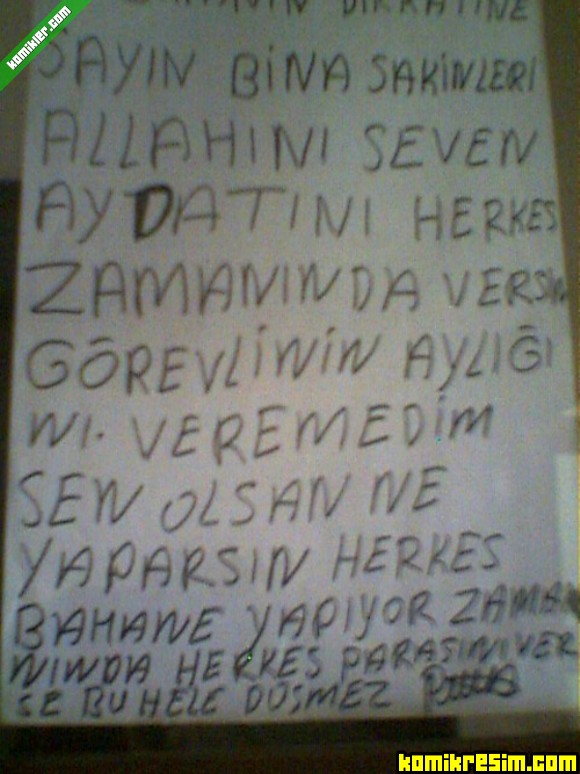 komikler.com
DİKKATİNE
SAYIN BİNA SAKİNLERİ
ALLAHINI SEVEN
AYDATINI HERKES
ZAMANINDA VERSİN
GÖREVLİNİN AYLIĞI
NI. VEREMEDİM
SEN OLSAN NE
YAPARSIN HERKES
BAHANE YAPIYOR ZAMA
NINDA HERKES PARASINI VER
SE BU HELE DÜŞMEZ
komikresim.com